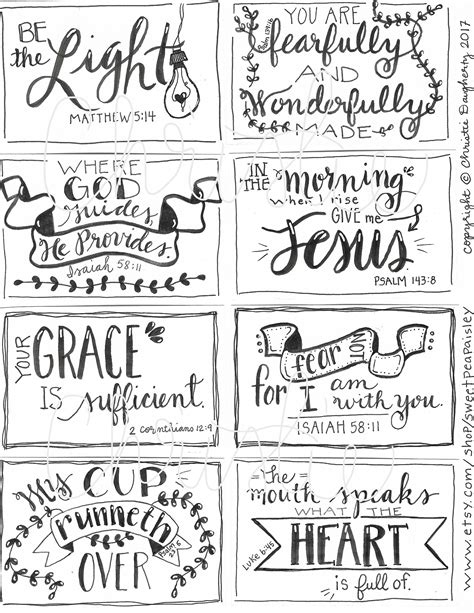 BE
the Light
MATTHEW 5:14
YOU ARE
fearfully
AND
Wonderfully
MADE
WHERE
GOD
Guides,
He Provides.
Isaiah 58:11
IN
THE morning
when I rise
GIVE me
JESUS.
PSALM 143:8
YOUR
GRACE
IS sufficient.
2 Corinthians 12:9
fear NOT
for I am
with you.
ISAIAH 58:11
My CUP
runneth
OVER
Psalm
The
mouth speaks
WHAT THE
HEART
is full of.
Luke 6:45
copyright © Christie Daugherty 2017
www.etsy.com/shop/sweetPeaPaisley